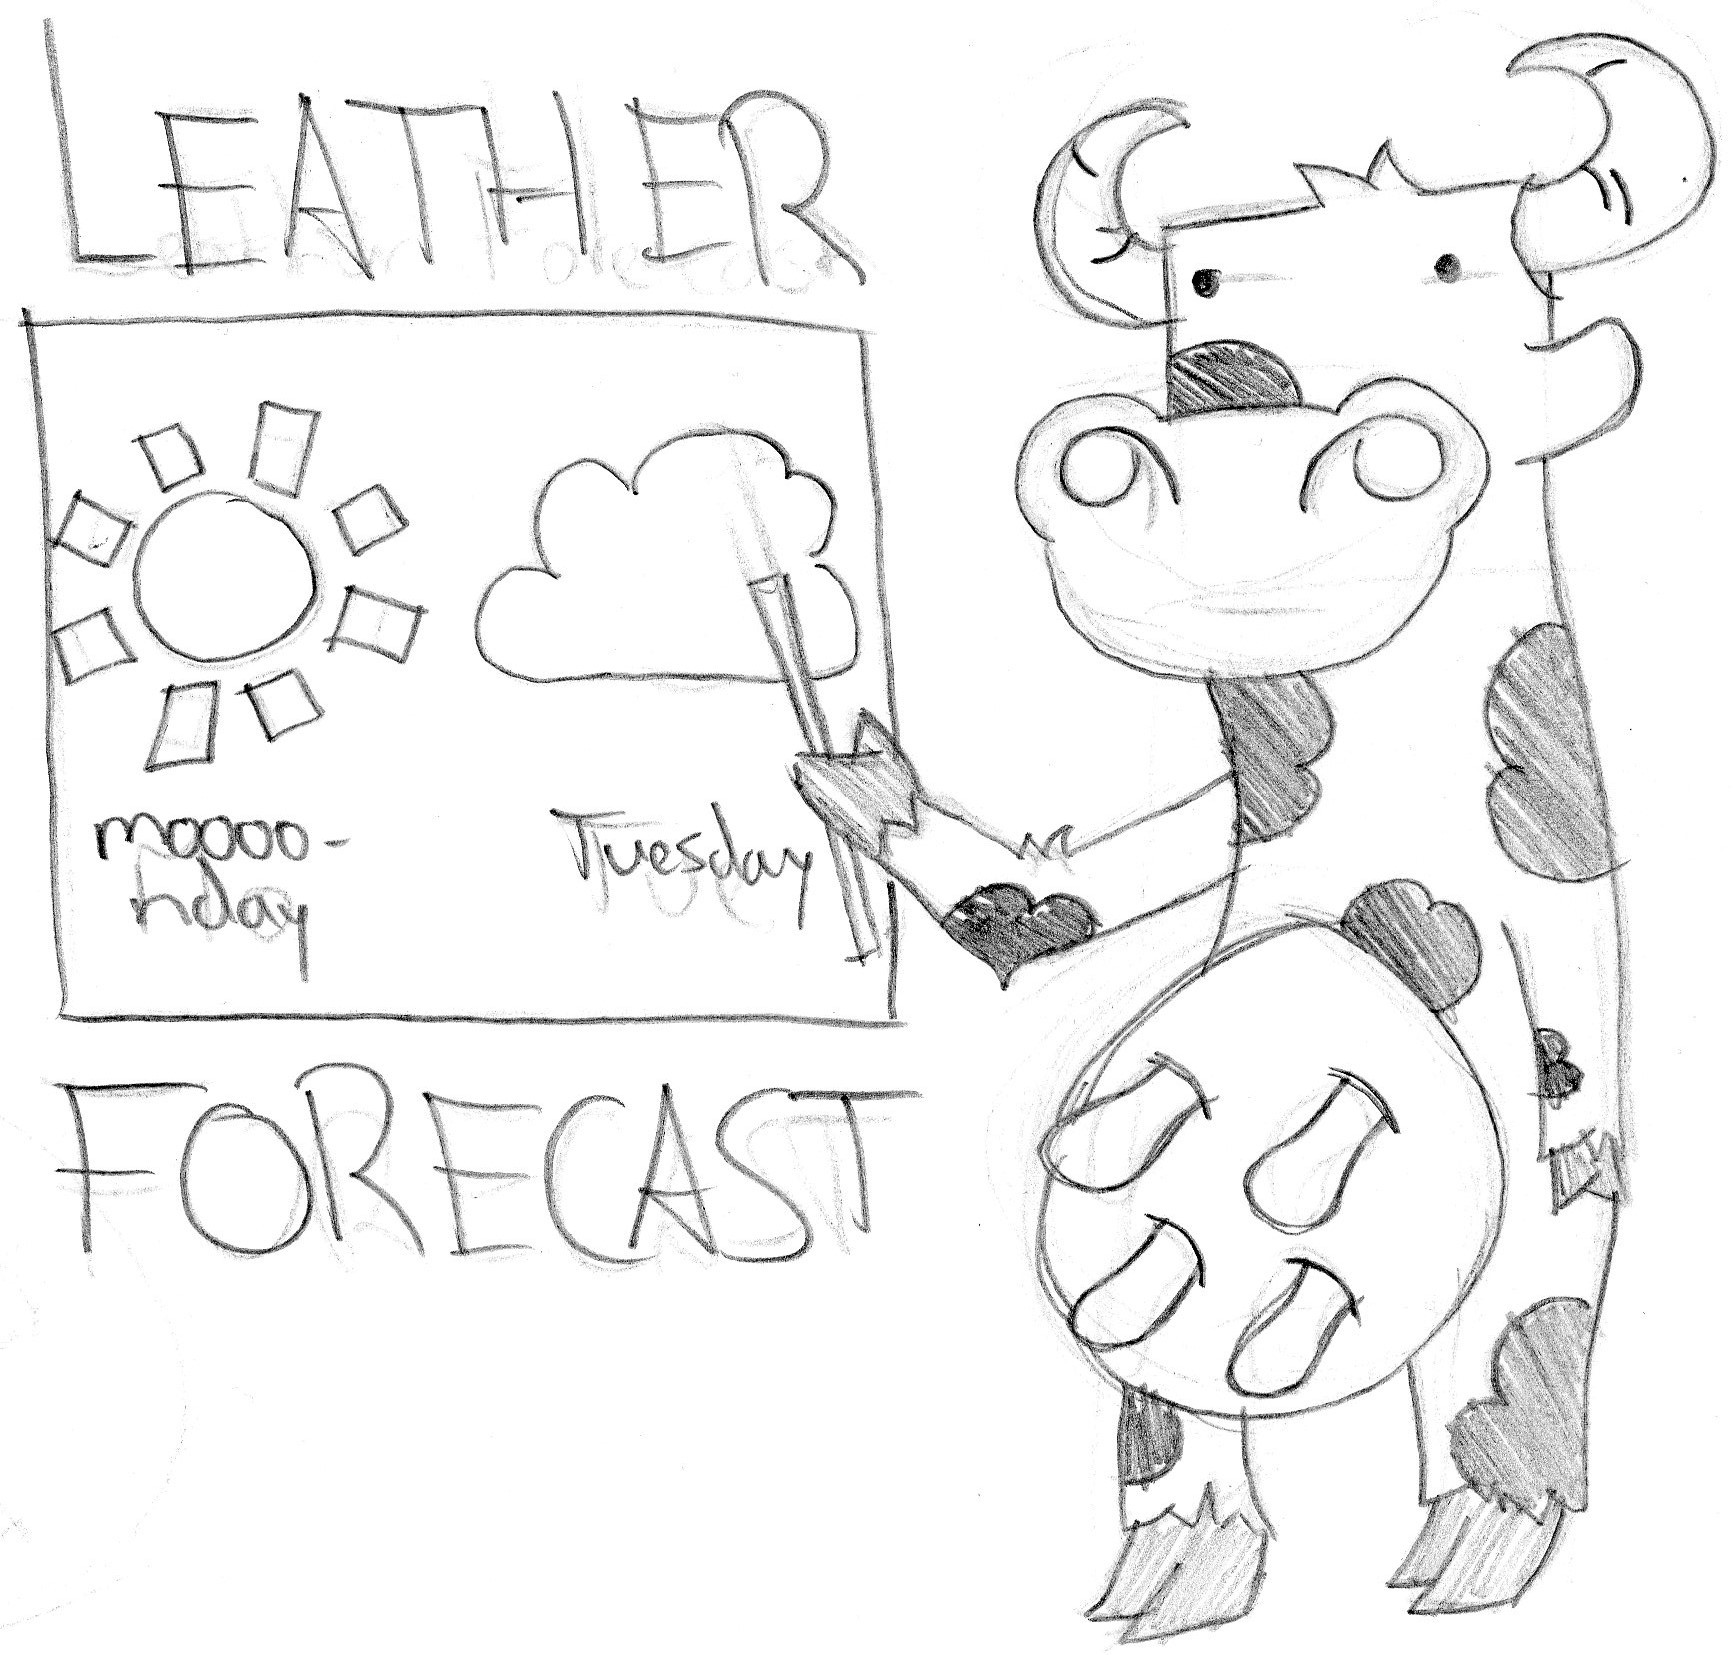 LEATHER
moooo-
nday
Tuesday
FORECAST